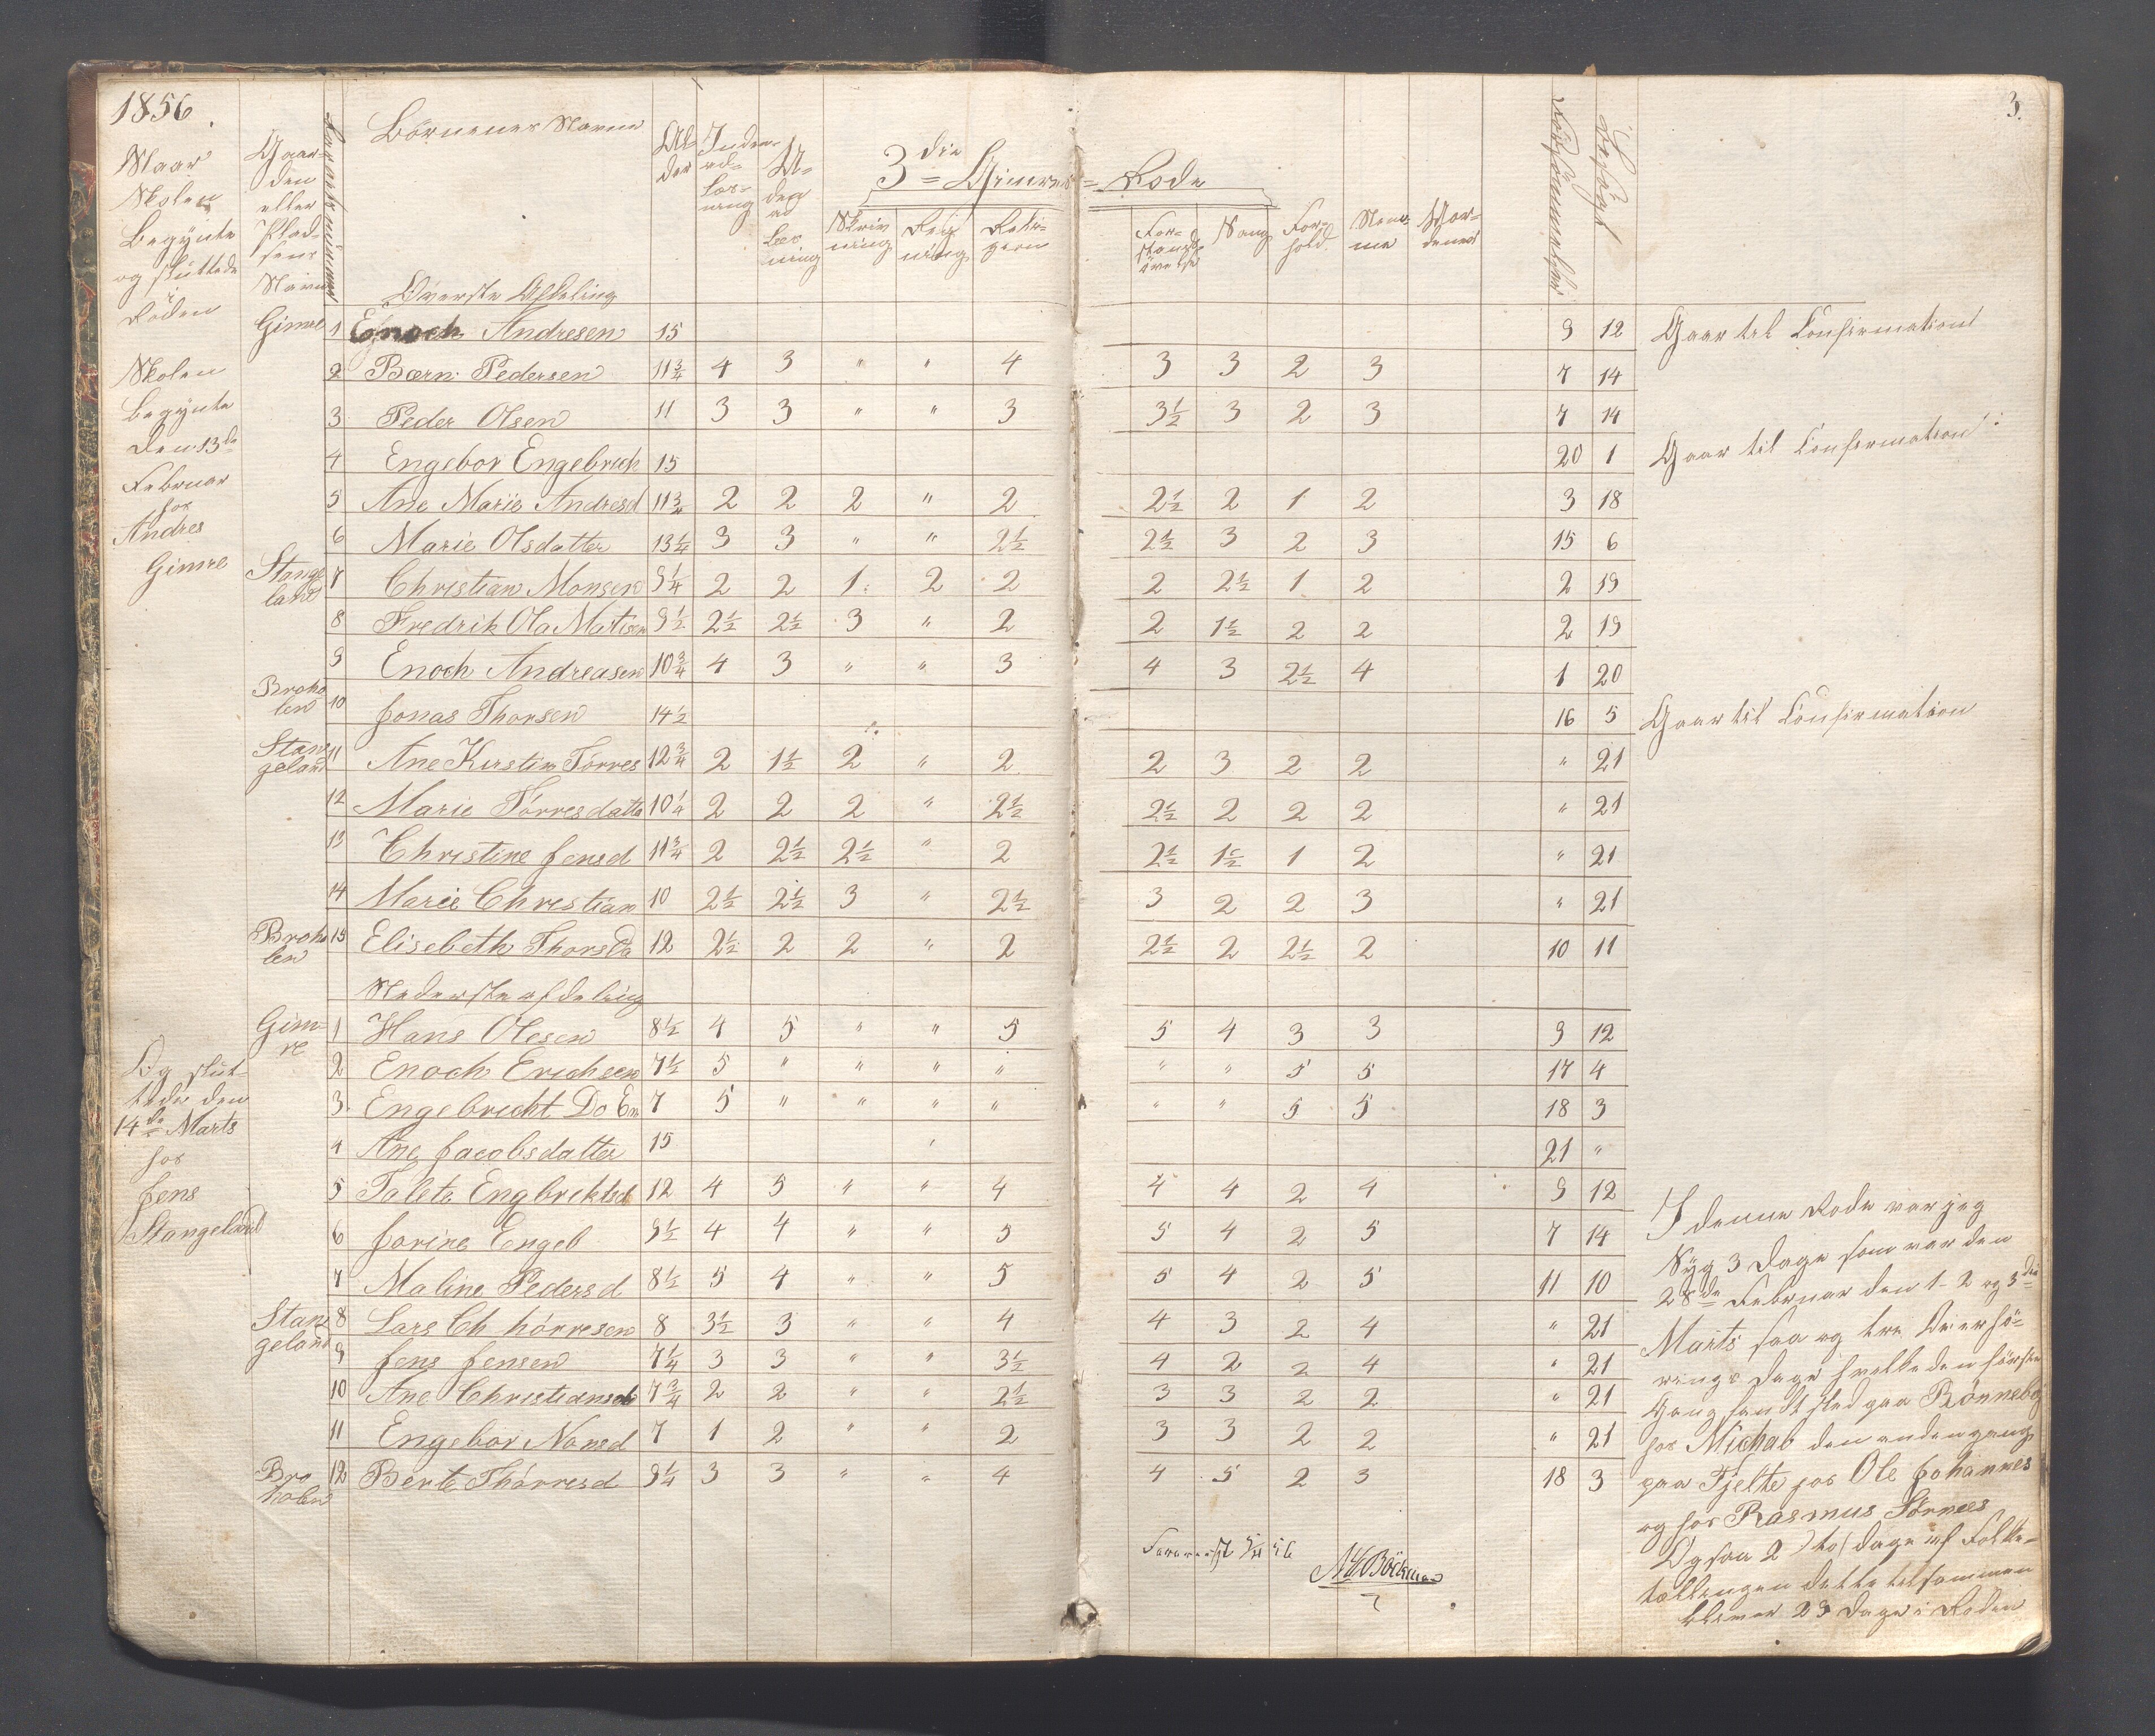 1856.
3.
3die Gimre Rode
Naar
Skolen
Begynte
og sluttede
i
Roden
Gaar-
den
eller
Plad-
sens
Navn
Børnenes Navne
Al-
der
Inden-
ad-
læs-
ning
U-
den
ad
Læs
ning
Skriv
ning
Reg
ning
Reli-
gion
For-
stands
øvelse
Sang
For-
hold
Nem-
me
Forsömmelser
Besögt
Øverste Afdeling
Gimre 1 Enoch Andresen 15 9 12 Gaar til Confirmation
2 Bærn Pedersen 11 3/4 4 3 " " 4 3 3 2 3 7 14
3 Peder Olsen 11 3 3 " " 3 3 1/2 3 2 3 7 14
4 Engebor Engebrich 15 20 1 Gaar til Confirmation
5 Ane Marie Andresd 11 3/4 2 2 2 " 2 2 1/2 2 1 2 3 18
6 Marie Olsdatter 13 1/4 3 3 " " 2 1/2 2 1/2 3 2 3 15 6
Stange
land 7 Christian Monsen 9 1/4 2 2 1 2 2 2 2 1/2 1 2 2 19
8 Fredrik Ola Matisen 9 1/2 2 1/2 2 1/2 3 " 2 2 1 1/2 2 2 2 19
9 Enoch Andreasen 10 3/4 4 3 " " 3 4 3 2 1/2 4 1 20
Broho
len 10 Jonas Thorsen 14 1/2 16 5 Gaar til Confirmation
Stan
geland 11 Ane Kirstin Törres 12 3/4 2 1 1/2 2 " 2 2 3 2 2 " 21
12 Marie Törresdatter 10 1/4 2 2 2 " 2 1/2 2 1/2 2 2 2 " 21
13 Christine Jensd 11 3/4 2 2 1/2 2 1/2 " 2 2 1/2 1 1/2 1 2 " 21
14 Marie Christian 10 2 1/2 2 1/2 3 " 2 1/2 3 2 2 3 " 21
Broho
len 15 Elisebeth Thorsda 12 2 1/2 2 2 " 2 2 1/2 2 2 1/2 2 10 11
Nederste afdeling
Gim-
re 1 Hans Olesen 8 1/2 4 5 " " 5 5 4 3 3 9 12
2 Enoch Erichsen 7 1/2 5 " " " " " " 5 5 17 4
3. Engebrecht Do En 7 5 " " " " " " 5 5 18 3
4 Ane Jacobsdatter 15 21 "
5 Talete Engbrektsd 12 4 5 " " 4 4 4 2 4 9 12
6 Jorine Engeb 9 1/2 4 4 " " 5 5 4 2 5 7 14
7 Maline Pedersd 8 1/2 5 4 " " 5 5 4 2 5 11 10
Stan
geland 8 Lars Ch hörresen 8 3 1/2 3 " " 4 4 3 2 4 " 21
9 Jens Jensen 7 1/4 3 3 " " 3 1/2 4 2 2 4 " 21
10 Ane Christiansd 7 3/4 2 2 " " 2 1/2 3 3 2 2 " 21
11 Engebor Monsd 7 1 2 " " 2 3 3 2 2 " 21
Bro
holen 12 Berte Thörresd 9 1/4 3 3 " " 4 4 5 2 3 18 3
Skolen
Begynte
Den 13de
Februar
hos
Andres
Gimre
Og slut-
tede den
14de Marts
hos
Jens
Stangeland
I denne Rode var jeg
Syg 3 Dage som var den
28de Februar den 1- 2 og 3die
Marts saa og tre Overhö-
rings Dage hvilke den förste
Gang handt sted paa Rönneberg
hos Michab den anden gang
paa Tjelte hos Ole Johannes
og hos Rasmus Sörnees
Og saa 2 (to) dage af Folke-
tællingen dette tilsammen
bliver 29 Dage i Roden
N Böckman